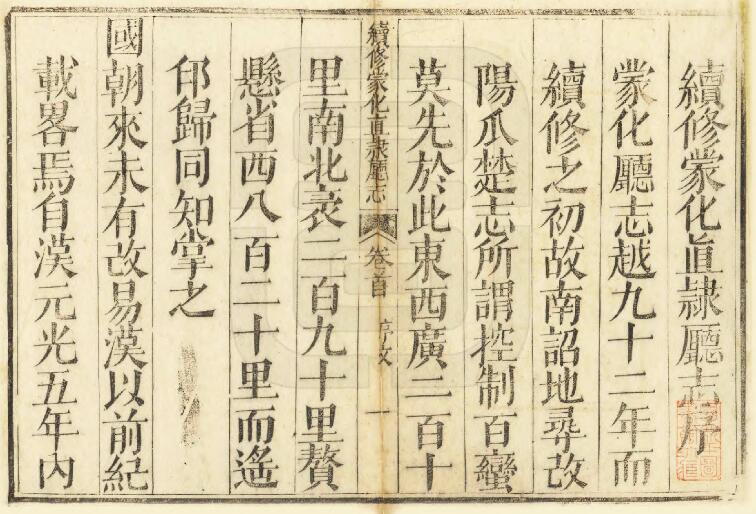 續修蒙化直隷廳志序
蒙化廳志越九十二年而
續修之初故南詔地尋改
陽瓜楚志所謂控制百蠻
莫先於此東西廣二百十
續修蒙化直隷廳志 卷首 序文 一
里南北袤二百九十里贅
懸省西八百二十里而遙
邙歸同知掌之
國朝來未有改易漢以前紀
載畧焉自漢元光五年內